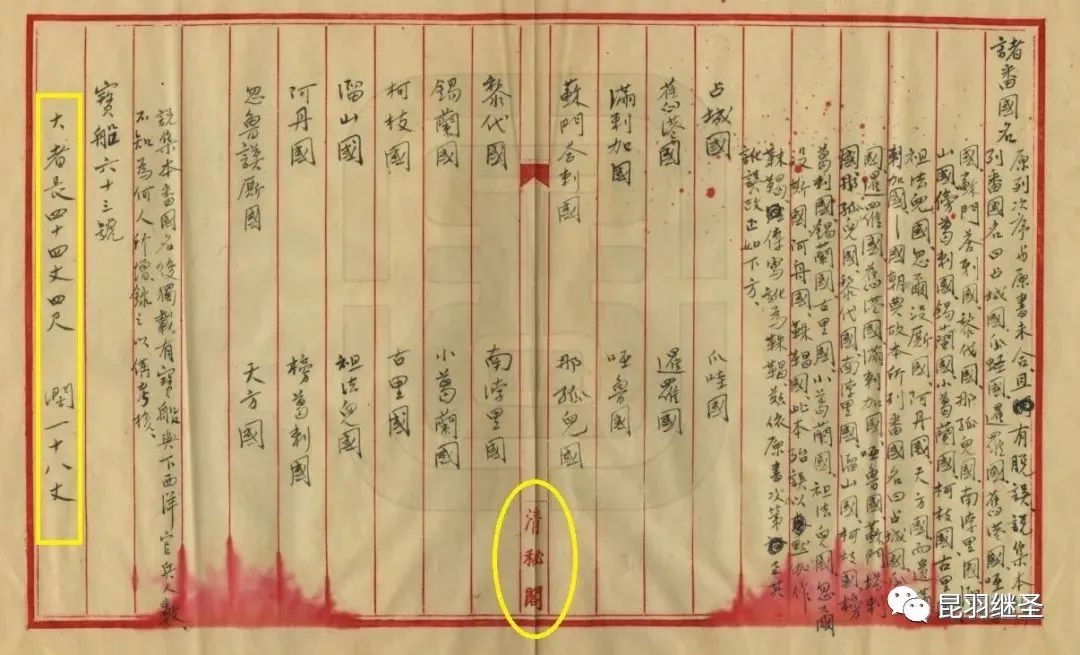 諸番國名
原列次序与原書未合且有脫誤説集本
列番國名曰占城國爪蛙國暹羅國舊港國啞
國蘇門荅剌國黎代國那孤兒國南浡里國
山國榜葛剌國錫蘭國小葛蘭國柯枝國古里
祖法兒國忽爾没廝國阿丹國天方國而遺滿
剌加國一國朝典故本所列番國名曰占城國爪
國暹羅國舊港國滿剌加國啞魯國蘇門塔剌
國那孤兒國黎代國南浡里國溜山國柯枝國榜
葛剌國錫蘭國古里國小葛蘭國祖法兒國忽魯國
没斯國阿丹國靺鞨國此本殆誤以點加作
靺鞨係寫訛為靺鞨兹依原書次第正其
訛誤改正如下方
占城國 爪哇國
舊港國 暹羅國
滿剌加国 啞魯國
蘇門荅剌國 那孤兒國
黎代國 南浡里國
錫蘭國 小葛蘭國
柯枝國 古里國
溜山國 祖法兒國
阿丹國 榜葛剌國
忽魯謨厮國 天方國
説集本番國名後獨載有寶船與下西洋官兵人數
不知為何人所增録之以俻考核
寶船六十三號
大者長四十四丈四尺 濶一十八丈
清秘閣
昆羽继圣